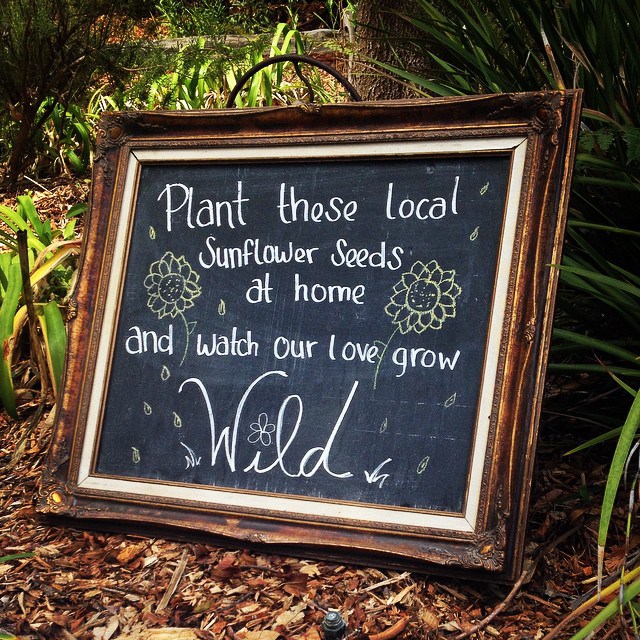 Plant these local
Sunflower Seeds
at home
and watch our love grow
Wild